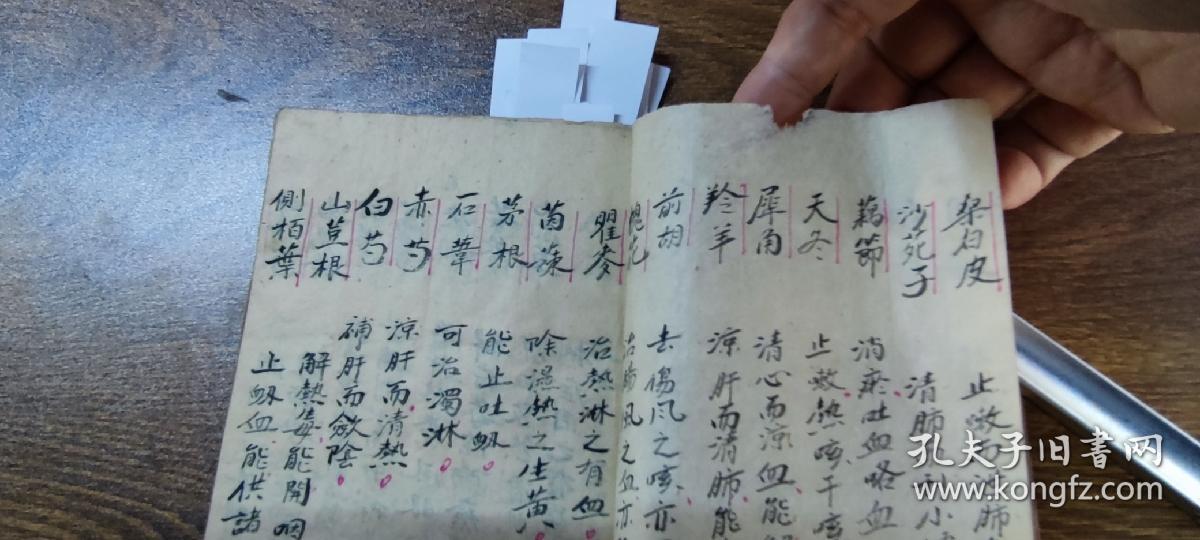 桑白皮 止嗽而 肺
沙苑子 清肺 小
藕節 消瘀吐血咯血
天冬 止嗽熱咳干咳
犀角 清心而涼血能
羚羊 涼肝而清肺能
前胡 去傷風之咳亦
槐花 治腸風之血亦
瞿麥 治熱淋之有血
茵蔯 除濕熱之生黃
茅根 能止吐衂
石葦 可治濁淋
赤芍 涼肝而清熱
白芍 補肝而歛陰
山荳根 解熱毒能開咽
側栢葉 止衂血能供諸
孔夫子旧書网
www.kongfz.com